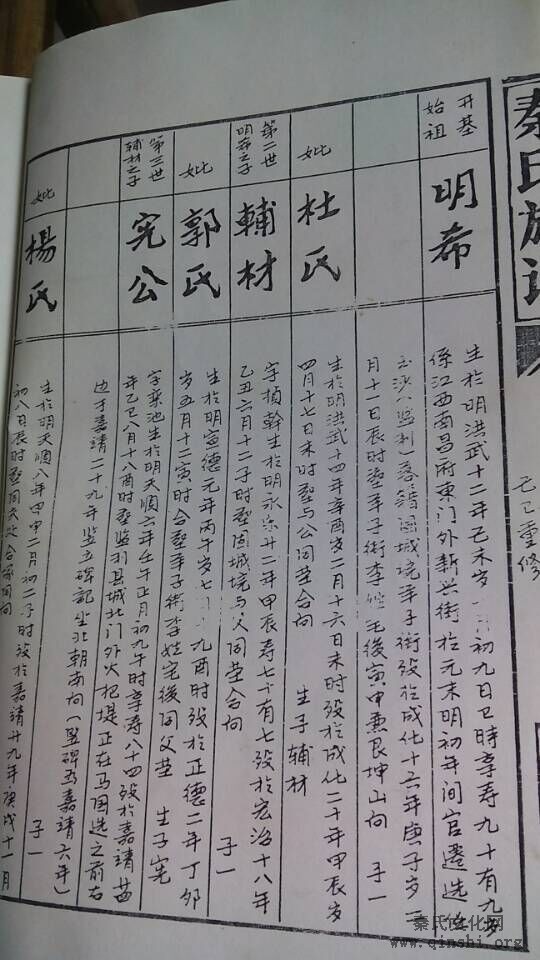 秦氏族谱
己巳重修
开基
始祖
明希
生於明洪武十二年己未岁 月初九日巳時享寿九十有九歲
係江西南昌府東门外新兴街於元末明初年间官遷选
玉沙(监利)落籍固城境 子街殁於成化十六年庚子岁二
月十一日辰時 子街李 宅後寅甲兼艮坤山向 子一
妣
杜氏
生於明洪武十四年辛酉岁二月十六日未時殁於成化二十年甲辰岁
四月十七日未時塟与公同茔合向 生子辅材
第二世
明希之子
輔材
字楨幹生於明永乐廿二年甲辰寿七十有七殁於宏治十八年
乙丑六月十二子時塟固城境与父同茔合向 子一
妣
郭氏
生於明宣德元年丙午岁七 九酉時殁於正德二年丁卯
岁五月十二寅时合塟 子街李姓宅後同父茔 生子宪
第三世
辅材之子
宪公
字荣池生於明天順六年壬午正月初九午时享寿八十四殁於嘉靖廿
年乙巳八月十八酉時塟监利县城北门外火把堤正在马 选之前右
边于嘉靖二十九年竖立碑記坐北朝南向(竖碑为嘉靖六年)
妣
楊氏
生於明天順八年甲申二月初二子时殁於嘉靖廿九年庚戌十一月
初八日辰时塟同夫处合家同向 子一
秦氏文化网
www.qinshi.org